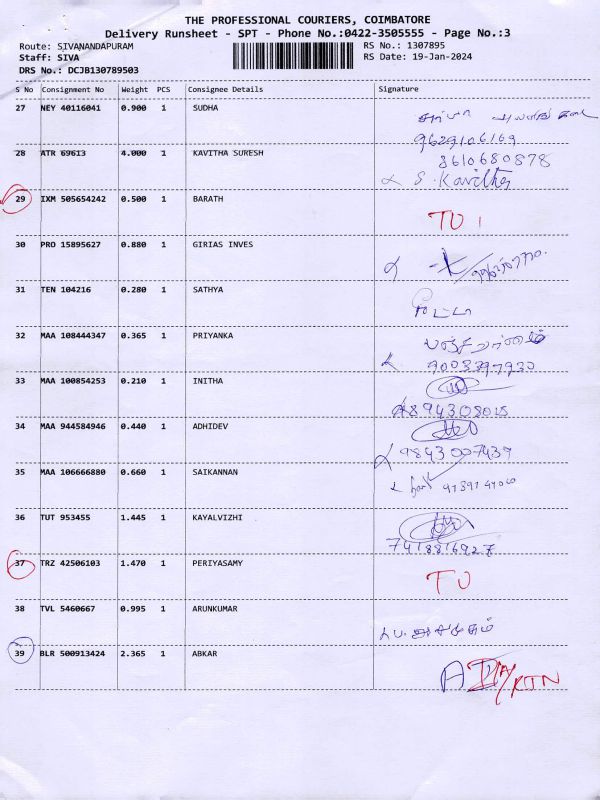 THE PROFESSIONAL COURIERS, COIMBATORE
Delivery Runsheet - SPT - Phone No.:0422-3505555 - Page No.:3
Route: SIVANANDAPURAM RS No.: 1307895
Staff: SIVA RS Date: 19-Jan-2024
DRS No.: DCJB130789503
S No Consignment No Weight PCS Consignee Details Signature
27 NEY 40116041 0.900 1 SUDHA
9629106169
28 ATR 69613 4.000 1 KAVITHA SURESH 8610680878
S. Kavitha
29 IXM 505654242 0.500 1 BARATH
30 PRO 15895627 0.880 1 GIRIAS INVES
31 TEN 104216 0.280 1 SATHYA
32 MAA 108444347 0.365 1 PRIYANKA
9003397930
33 MAA 100854253 0.210 1 INITHA
34 MAA 944584946 0.440 1 ADHIDEV
9843007439
35 MAA 106666880 0.660 1 SAIKANNAN
36 TUT 953455 1.445 1 KAYALVIZHI
7418816927
37 TRZ 42506103 1.470 1 PERIYASAMY
38 TVL 5460667 0.995 1 ARUNKUMAR
39 BLR 500913424 2.365 1 ABKAR